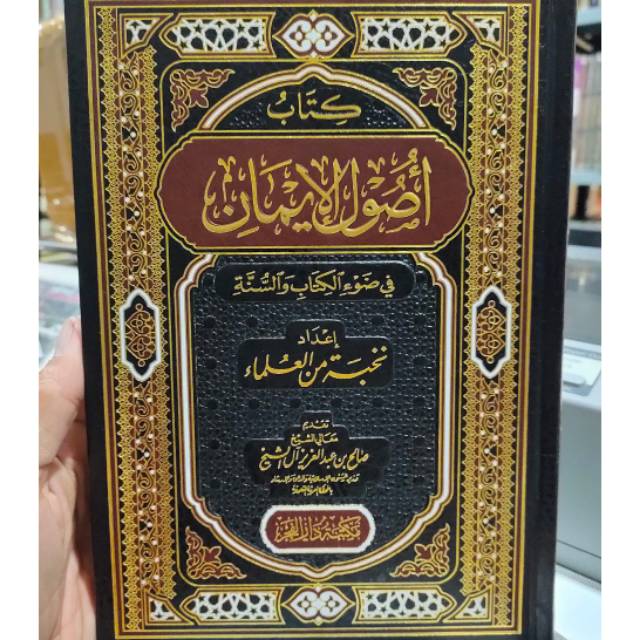 كِتَابُ
أُصُولِ الإِيمَانِ
فِي ضَوْءِ الكِتَابِ وَالسُّنَّةِ
إِعْدَادُ
نخبة من العُلماء
تقديم
معالي الشيخ
صالح بن عبد العزيز آل الشيخ
مكتبة دار الفجر